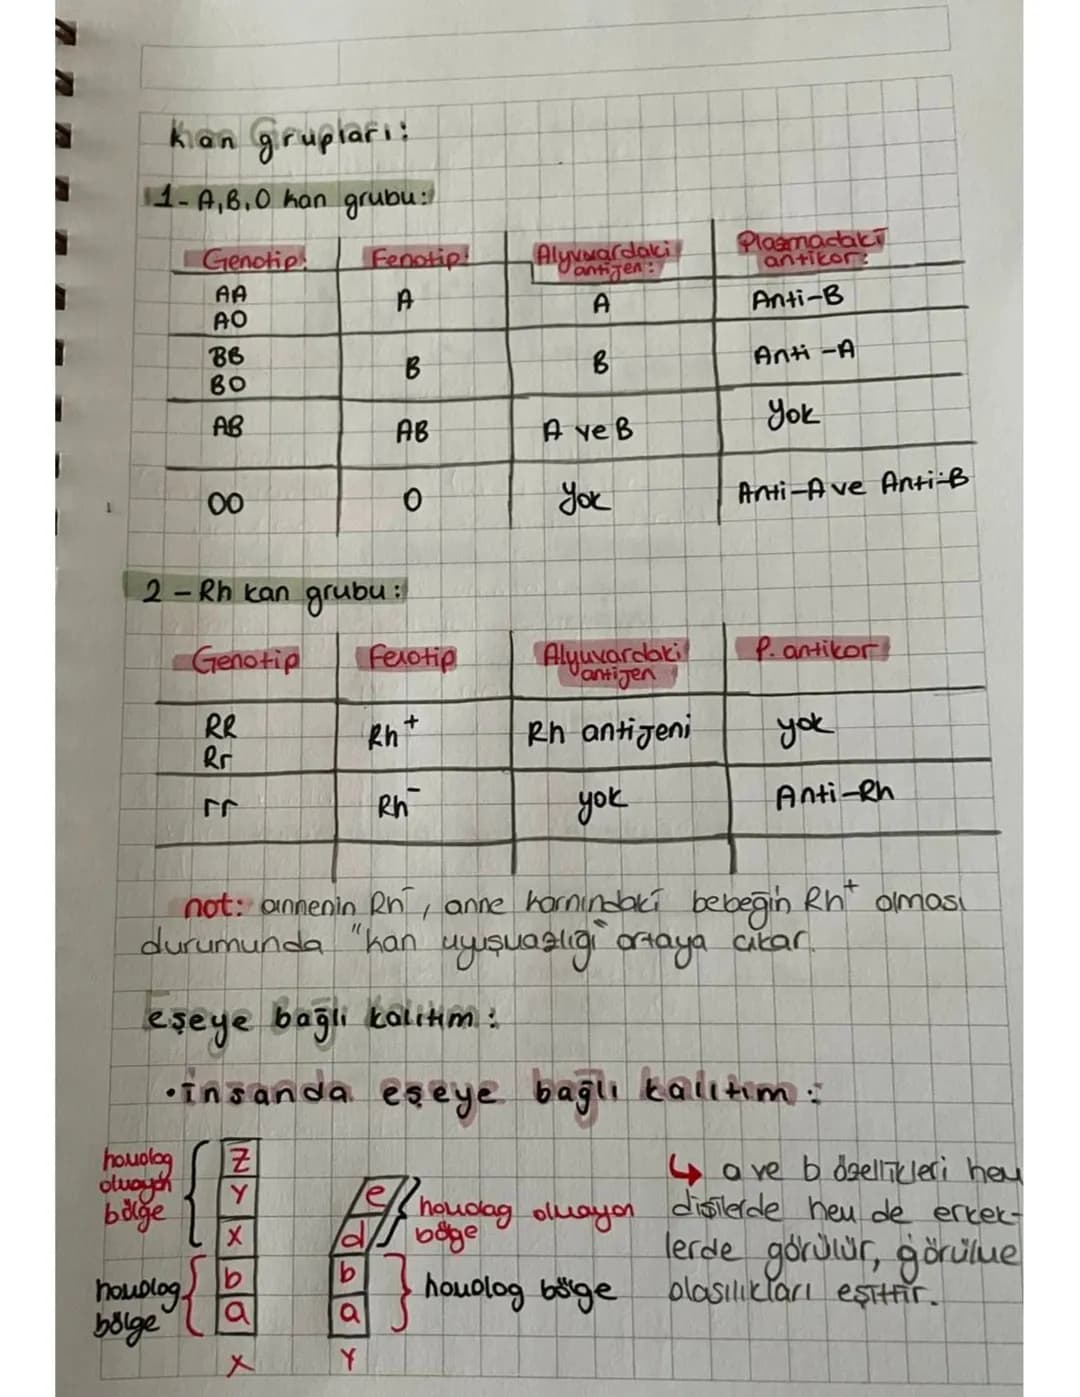 Kan Grupları:
1- A,B,O kan grubu:
Genotip: Fenotip: Alyuvardaki antijen: Plazmadaki antikor:
AA
AO A A Anti-B
BB
BO B B Anti-A
AB AB A ve B Yok
OO O Yok Anti-A ve Anti-B
2 - Rh kan grubu:
Genotip Fenotip Alyuvardaki antijen P. antikor
RR
Rr Rh+ Rh antijeni yok
rr Rh- yok Anti-Rh
not: annenin Rh-, anne karnındaki bebeğin Rh+ olması
durumunda "kan uyuşmazlığı" ortaya çıkar.
Eşeye bağlı kalıtım:
•insanda eşeye bağlı kalıtım:
homolog
olmayan
bölge
z
y
x
b
a
X
homolog
bölge
e
d
b
a
Y
homolog olmayan
bölge
homolog bölge
↳ a ve b özellikleri hem
dişilerde hem de erkek-
lerde görülür, görülme
olasılıkları eşittir.